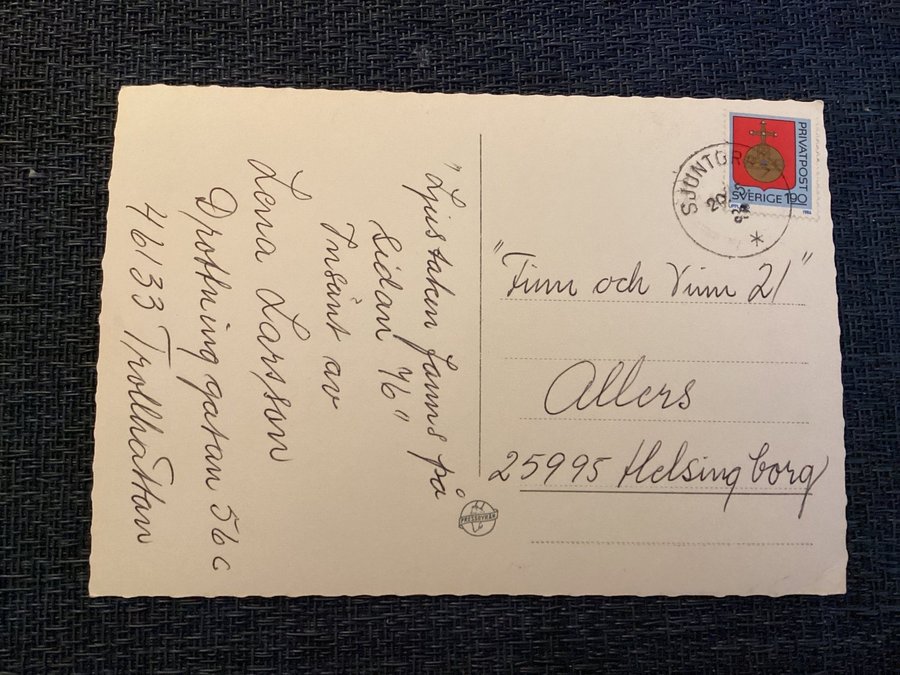 "Ljustaken fanns på
sidan 46"
Insänt av
Lena Larsson
Drottninggatan 56 C
46133 Trollhättan
PRESSBYRÅN
SJUNTORP
20
PRIVATPOST
SVERIGE 190
"Finn och Vinn 21"
Allers
25995 Helsingborg